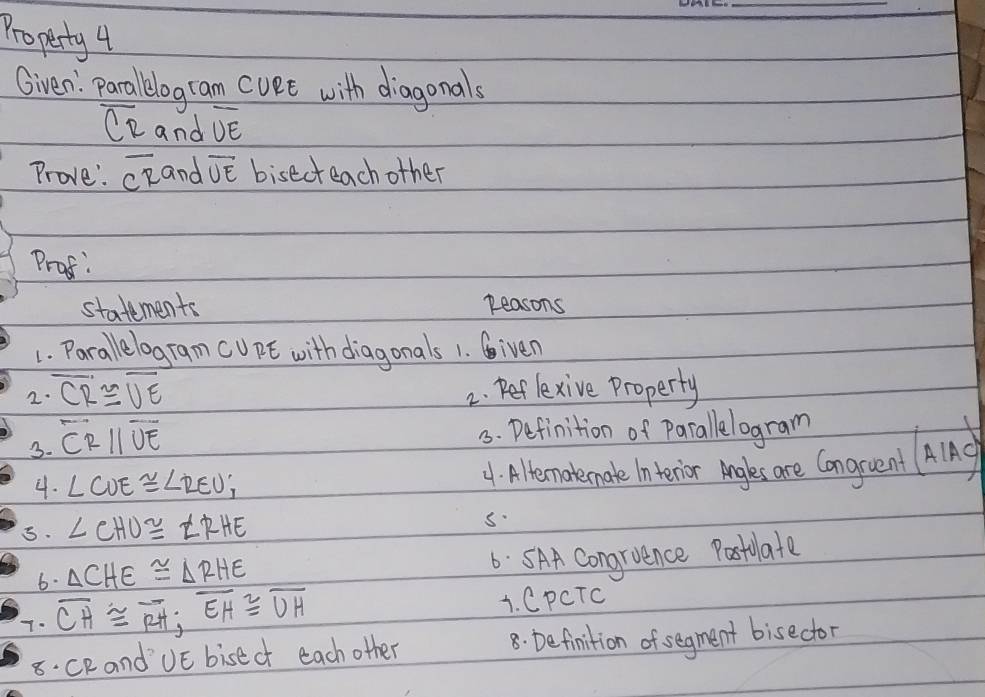 Property 4
Given: Parallelogram CURE with diagonals
C̅R̅ and U̅E̅
Prove: C̅R̅ and U̅E̅ bisect each other
Prof:
statements Reasons
1. Parallelogram CURE with diagonals 1. Given
2. C̅R̅ ≅ U̅E̅ 2. Reflexive Property
3. C̅R̅ || U̅E̅ 3. Definition of Parallelogram
4. ∠CUE ≅ ∠REU; 4. Alternaternate Interior Angles are Congruent (AIAC)
5. ∠CHU ≅ ∠RHE 5.
6. △CHE ≅ △RHE 6. SAA Congruence Postulate
7. C̅H̅ ≅ R̅H̅; E̅H̅ ≅ U̅H̅ 7. CPCTC
8. CR and UE bisect each other 8. Definition of segment bisector